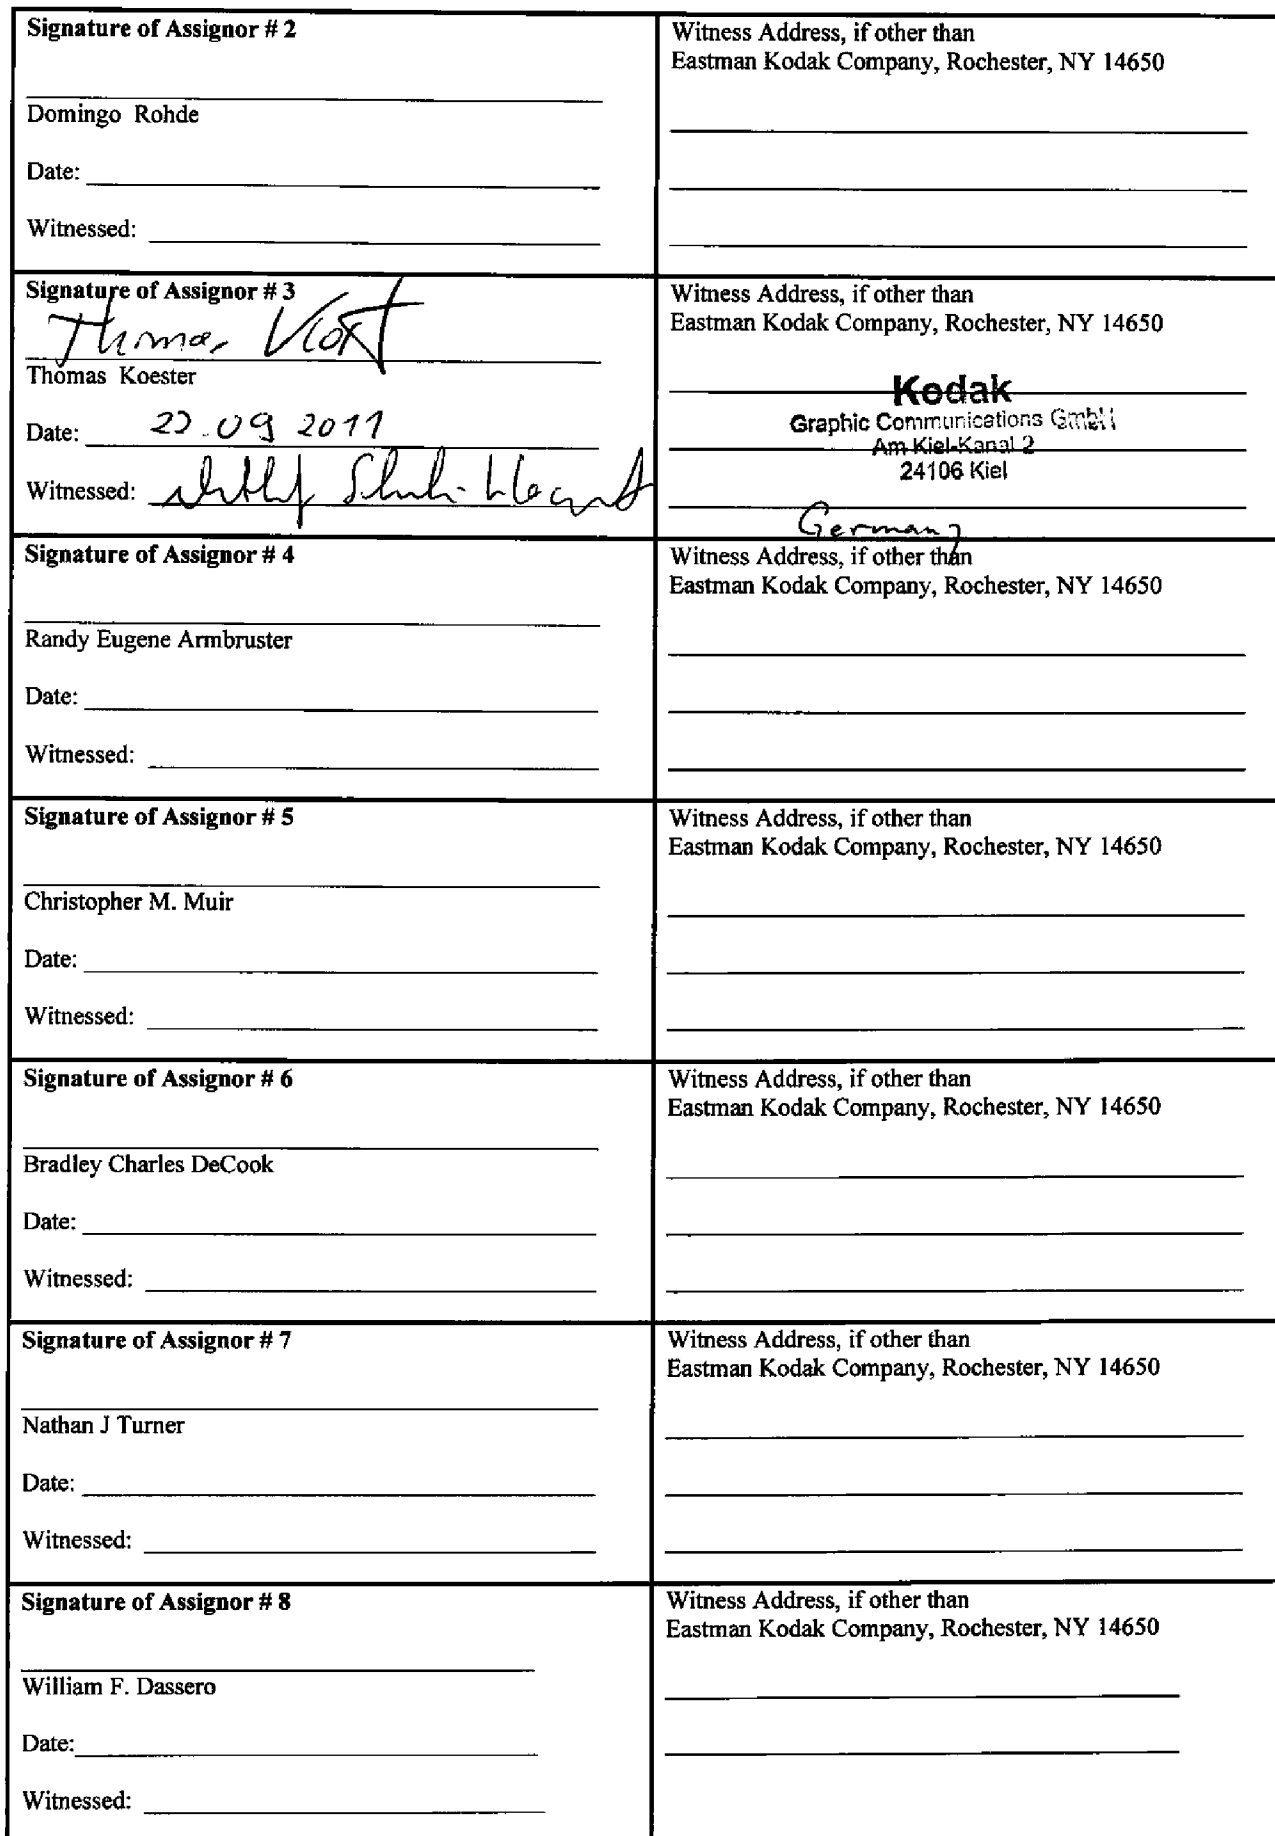 Signature of Assignor # 2
Domingo Rohde
Date:
Witnessed:
Witness Address, if other than
Eastman Kodak Company, Rochester, NY 14650
Signature of Assignor # 3
Thomas
Thomas Koester
Date: 09 2011
Witnessed:
Witness Address, if other than
Eastman Kodak Company, Rochester, NY 14650
Kodak
Graphic Communications GmbH
Am Kiel-Kanal 2
24106 Kiel
Germany
Signature of Assignor # 4
Randy Eugene Armbruster
Date:
Witnessed:
Witness Address, if other than
Eastman Kodak Company, Rochester, NY 14650
Signature of Assignor # 5
Christopher M. Muir
Date:
Witnessed:
Witness Address, if other than
Eastman Kodak Company, Rochester, NY 14650
Signature of Assignor # 6
Bradley Charles DeCook
Date:
Witnessed:
Witness Address, if other than
Eastman Kodak Company, Rochester, NY 14650
Signature of Assignor # 7
Nathan J Turner
Date:
Witnessed:
Witness Address, if other than
Eastman Kodak Company, Rochester, NY 14650
Signature of Assignor # 8
William F. Dassero
Date:
Witnessed:
Witness Address, if other than
Eastman Kodak Company, Rochester, NY 14650